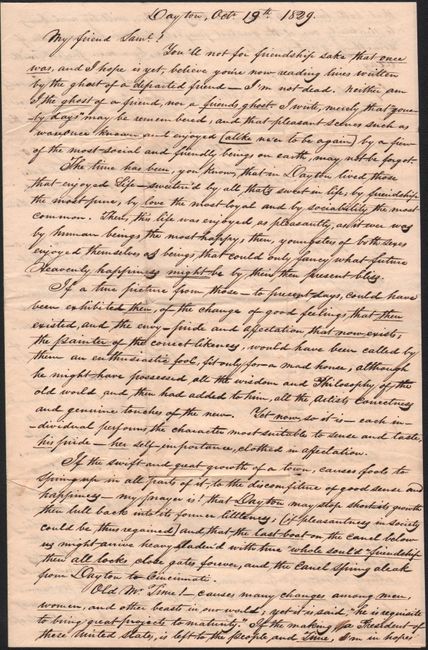 Dayton, Oct. 19th. 1829.
My friend Saml.!
You'll not for friendship sake that once
was, and I hope is yet, believe you're now reading lines written
by the ghost of a departed friend — I'm not dead, neither am
I the ghost of a friend, nor a friends ghost. I write, merely that "gone-
by days" may be remembered, and that pleasant scenes such as
was once known and enjoyed [alike ne'er to be again] by a few
of the most social and friendly beings on earth, may not be forgot.
The time has been, you know, that in Dayton lived those
that enjoyed Life — sweeten'd by all that's sweet in life, by friendship
the most pure, by love the most loyal and by sociability the most
common. Then, this life was enjoyed as pleasantly, as it ever was
by human beings the most happy; then, youngsters of both sexes
enjoyed themselves as beings, that could only fancy what future
Heavenly happiness might be by their then present bliss.
If a true picture from those — to present days, could have
been exhibited then, of the change of good feelings that then
existed, and the envy — pride and affectation that now exists,
the painter of the correct likeness, would have been called by
them an enthusiastic fool, fit only for a mad house, although
he might have possessed all the wisdom and Philosophy of the
old world and then had added to him, all the Artists Correctness
and genuine touches of the new. Yet now, so it is — each in-
dividual performs the character most suitable to sense and taste,
his pride — her self-importance, clothed in affectation.
If the swift and great growth of a town, causes fools to
spring up in all parts of it, to the discomfiture of good sense and
happiness — my prayer is! that Dayton may stop short its growth
then lull back into its former littleness, [if pleasantness in society
could be thus regained] and that the last boat on the Canal below
us might arrive heavy laden'd with true "whole souled" friendship
then all locks close gates forever, and the Canal spring aleak
from Dayton to Cincinnati.
Old Mr. Time! — causes many changes among men,
women, and other beasts in our world, yet it is said, "he is requisite
to bring great projects to maturity." If the making a President of
these United States, is left to the people and Time, I'm in hopes